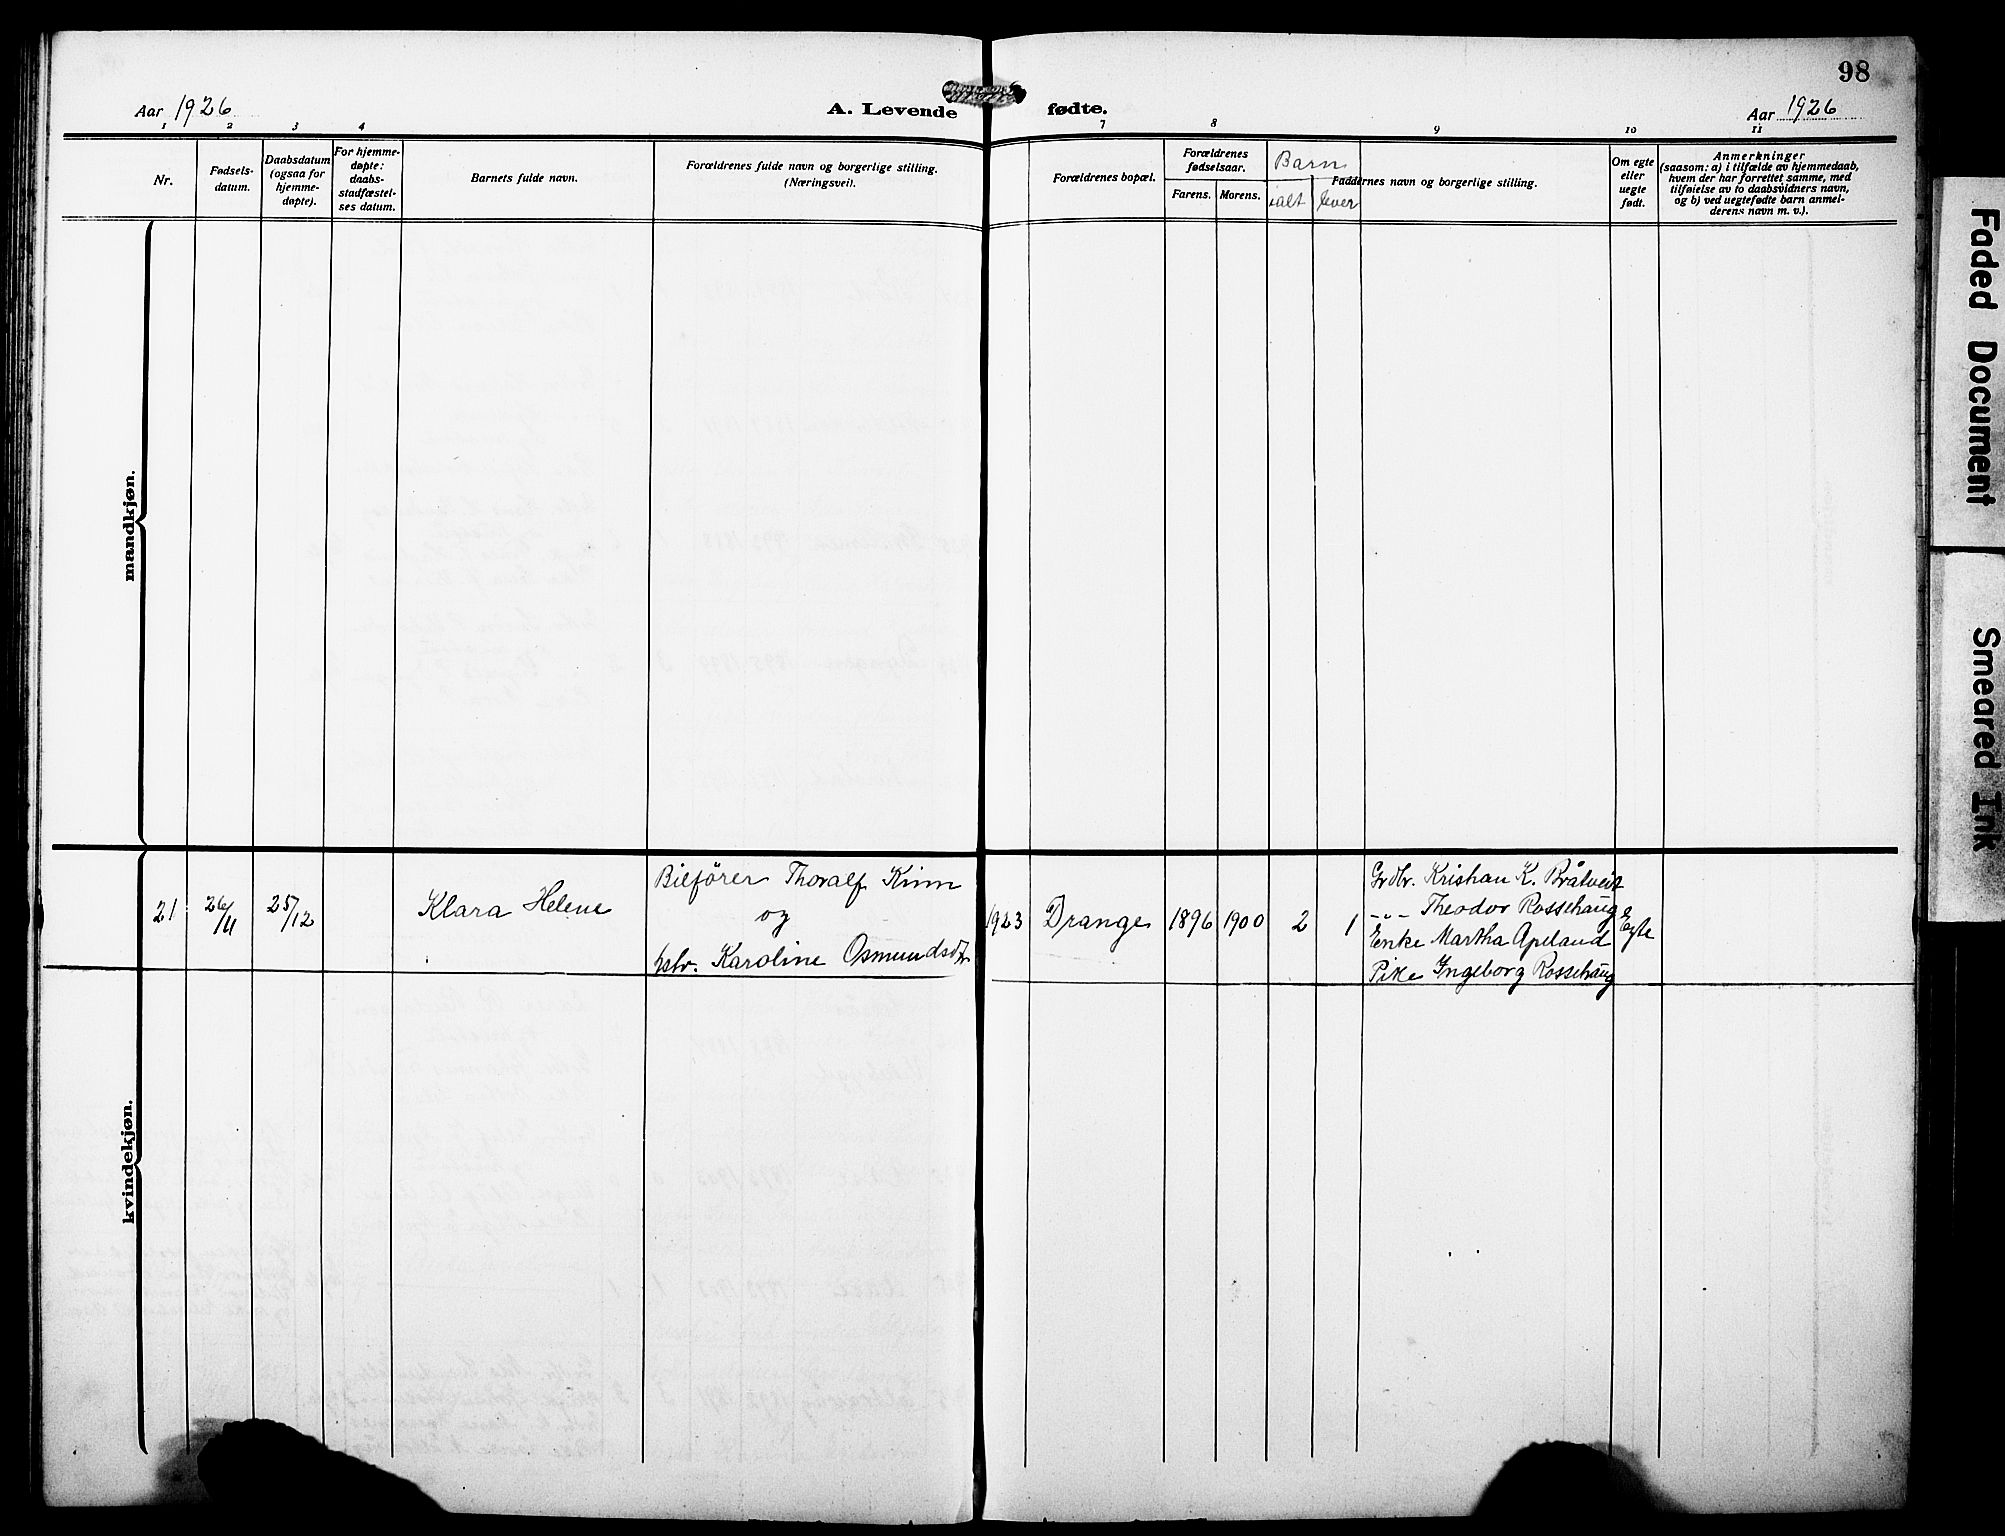 98
Aar 1926
A. Levende fødte.
Aar 1926
1 2 3 4 7 8 9 10 11
Nr.
Fødsels-
datum.
Daabsdatum
(ogsaa for
hjemme-
døpte).
For hjemme-
døpte:
daabs-
stadfæstel-
ses datum.
Barnets fulde navn.
Forældrenes fulde navn og borgerlige stilling.
(Næringsvei).
Forældrenes bopæl.
Forældrenes
fødselsaar.
Farens. Morens.
Barn
ialt lever
Faddernes navn og borgerlige stilling.
Om egte
eller
uegte
født.
Anmerkninger
(saasom: a) i tilfælde av hjemmedaab,
hvem der har forrettet samme, med
tilføielse av to daabsvidners navn,
og b) ved uegtefødte barn anmel-
derens navn m. v.).
mandkjøn.
kvindekjøn.
21
26/11
25/12
Klara Helene
Bilfører Thoralf Kinn
og
hstr. Karoline Osmundsdtr
1923
Drange
1896
1900
2
1
Grdbr. Kristian K. Bråtveit
-"- Theodor Rossehaug
Enke Martha Apeland
Pike Ingeborg Rossehaug
Egte
Faded Document
Smeared Ink